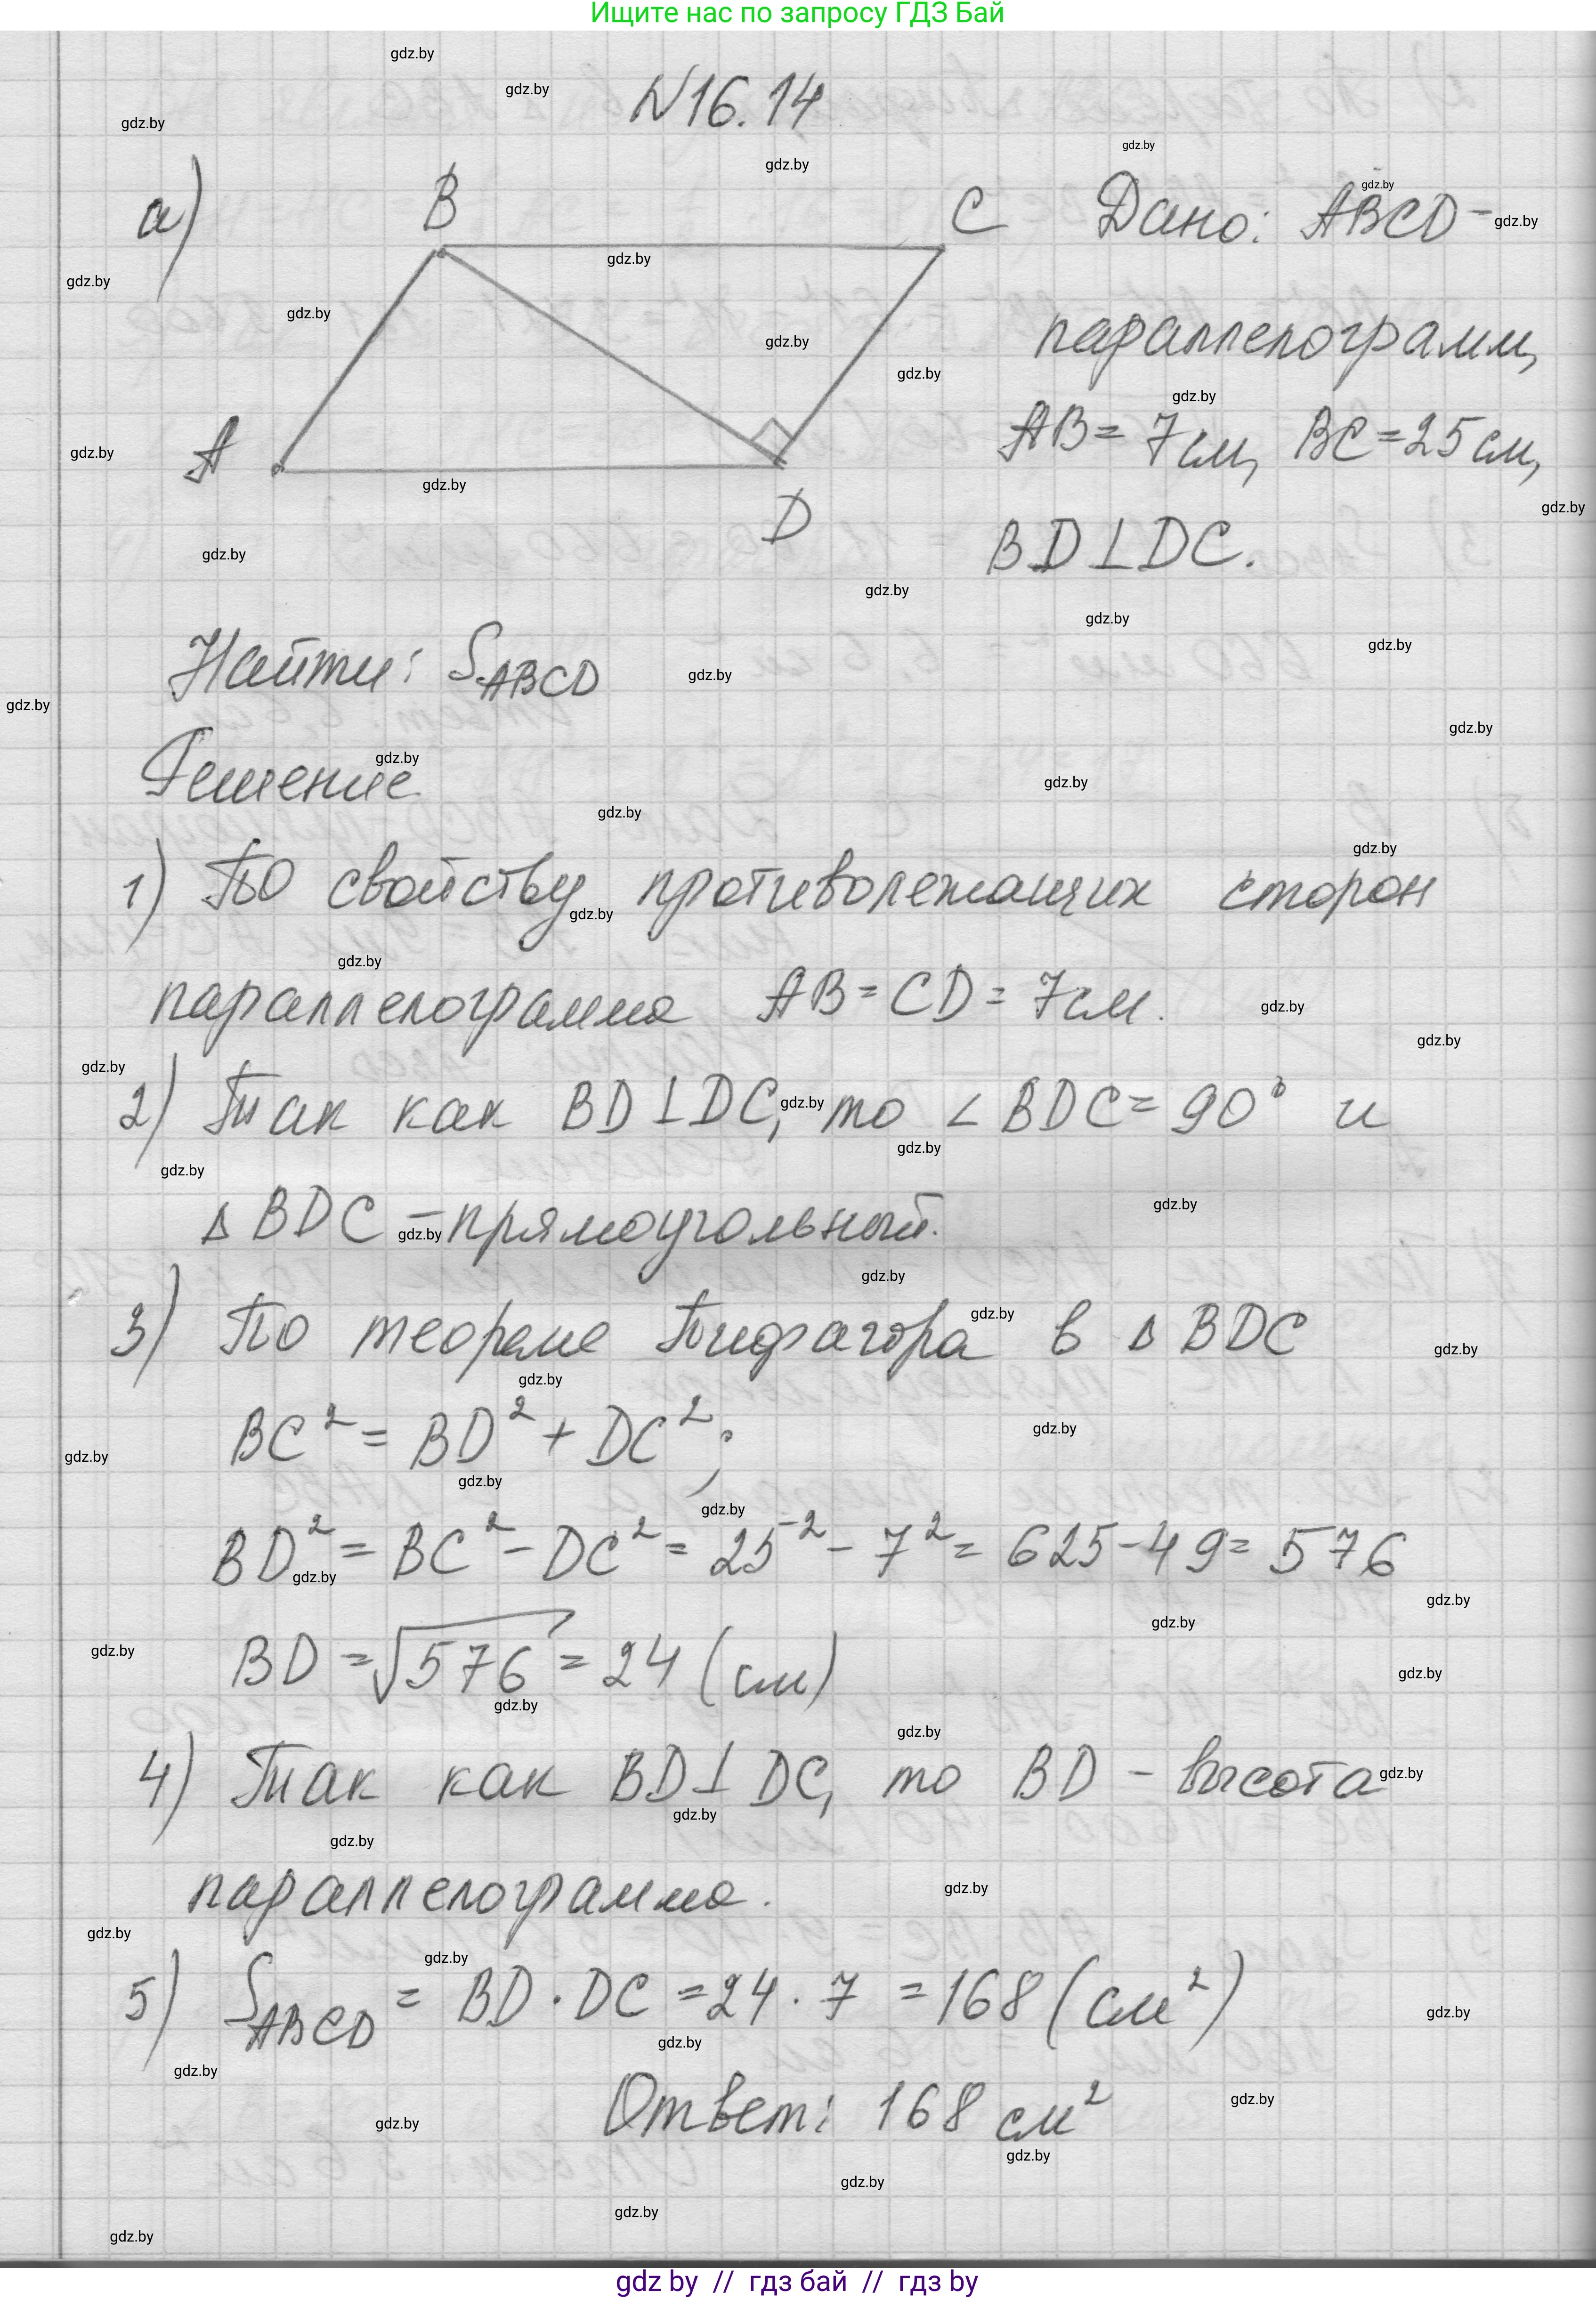 Ищите нас по запросу ГДЗ Бай
N16.14
а)
B
C
A
D
Дано: ABCD –
параллелограмм,
AB = 7 см, BC = 25 см,
BD ⊥ DC.
Найти: S_ABCD
Решение
1) По свойству противолежащих сторон
параллелограмма AB = CD = 7 см.
2) Так как BD ⊥ DC, то ∠ BDC = 90° и
Δ BDC – прямоугольный.
3) По теореме Пифагора в Δ BDC
BC² = BD² + DC²;
BD² = BC² – DC² = 25² – 7² = 625 – 49 = 576
BD = √576 = 24 (см)
4) Так как BD ⊥ DC, то BD – высота
параллелограмма.
5) S_ABCD = BD · DC = 24 · 7 = 168 (см²)
Ответ: 168 см²
gdz by // гдз бай // гдз by